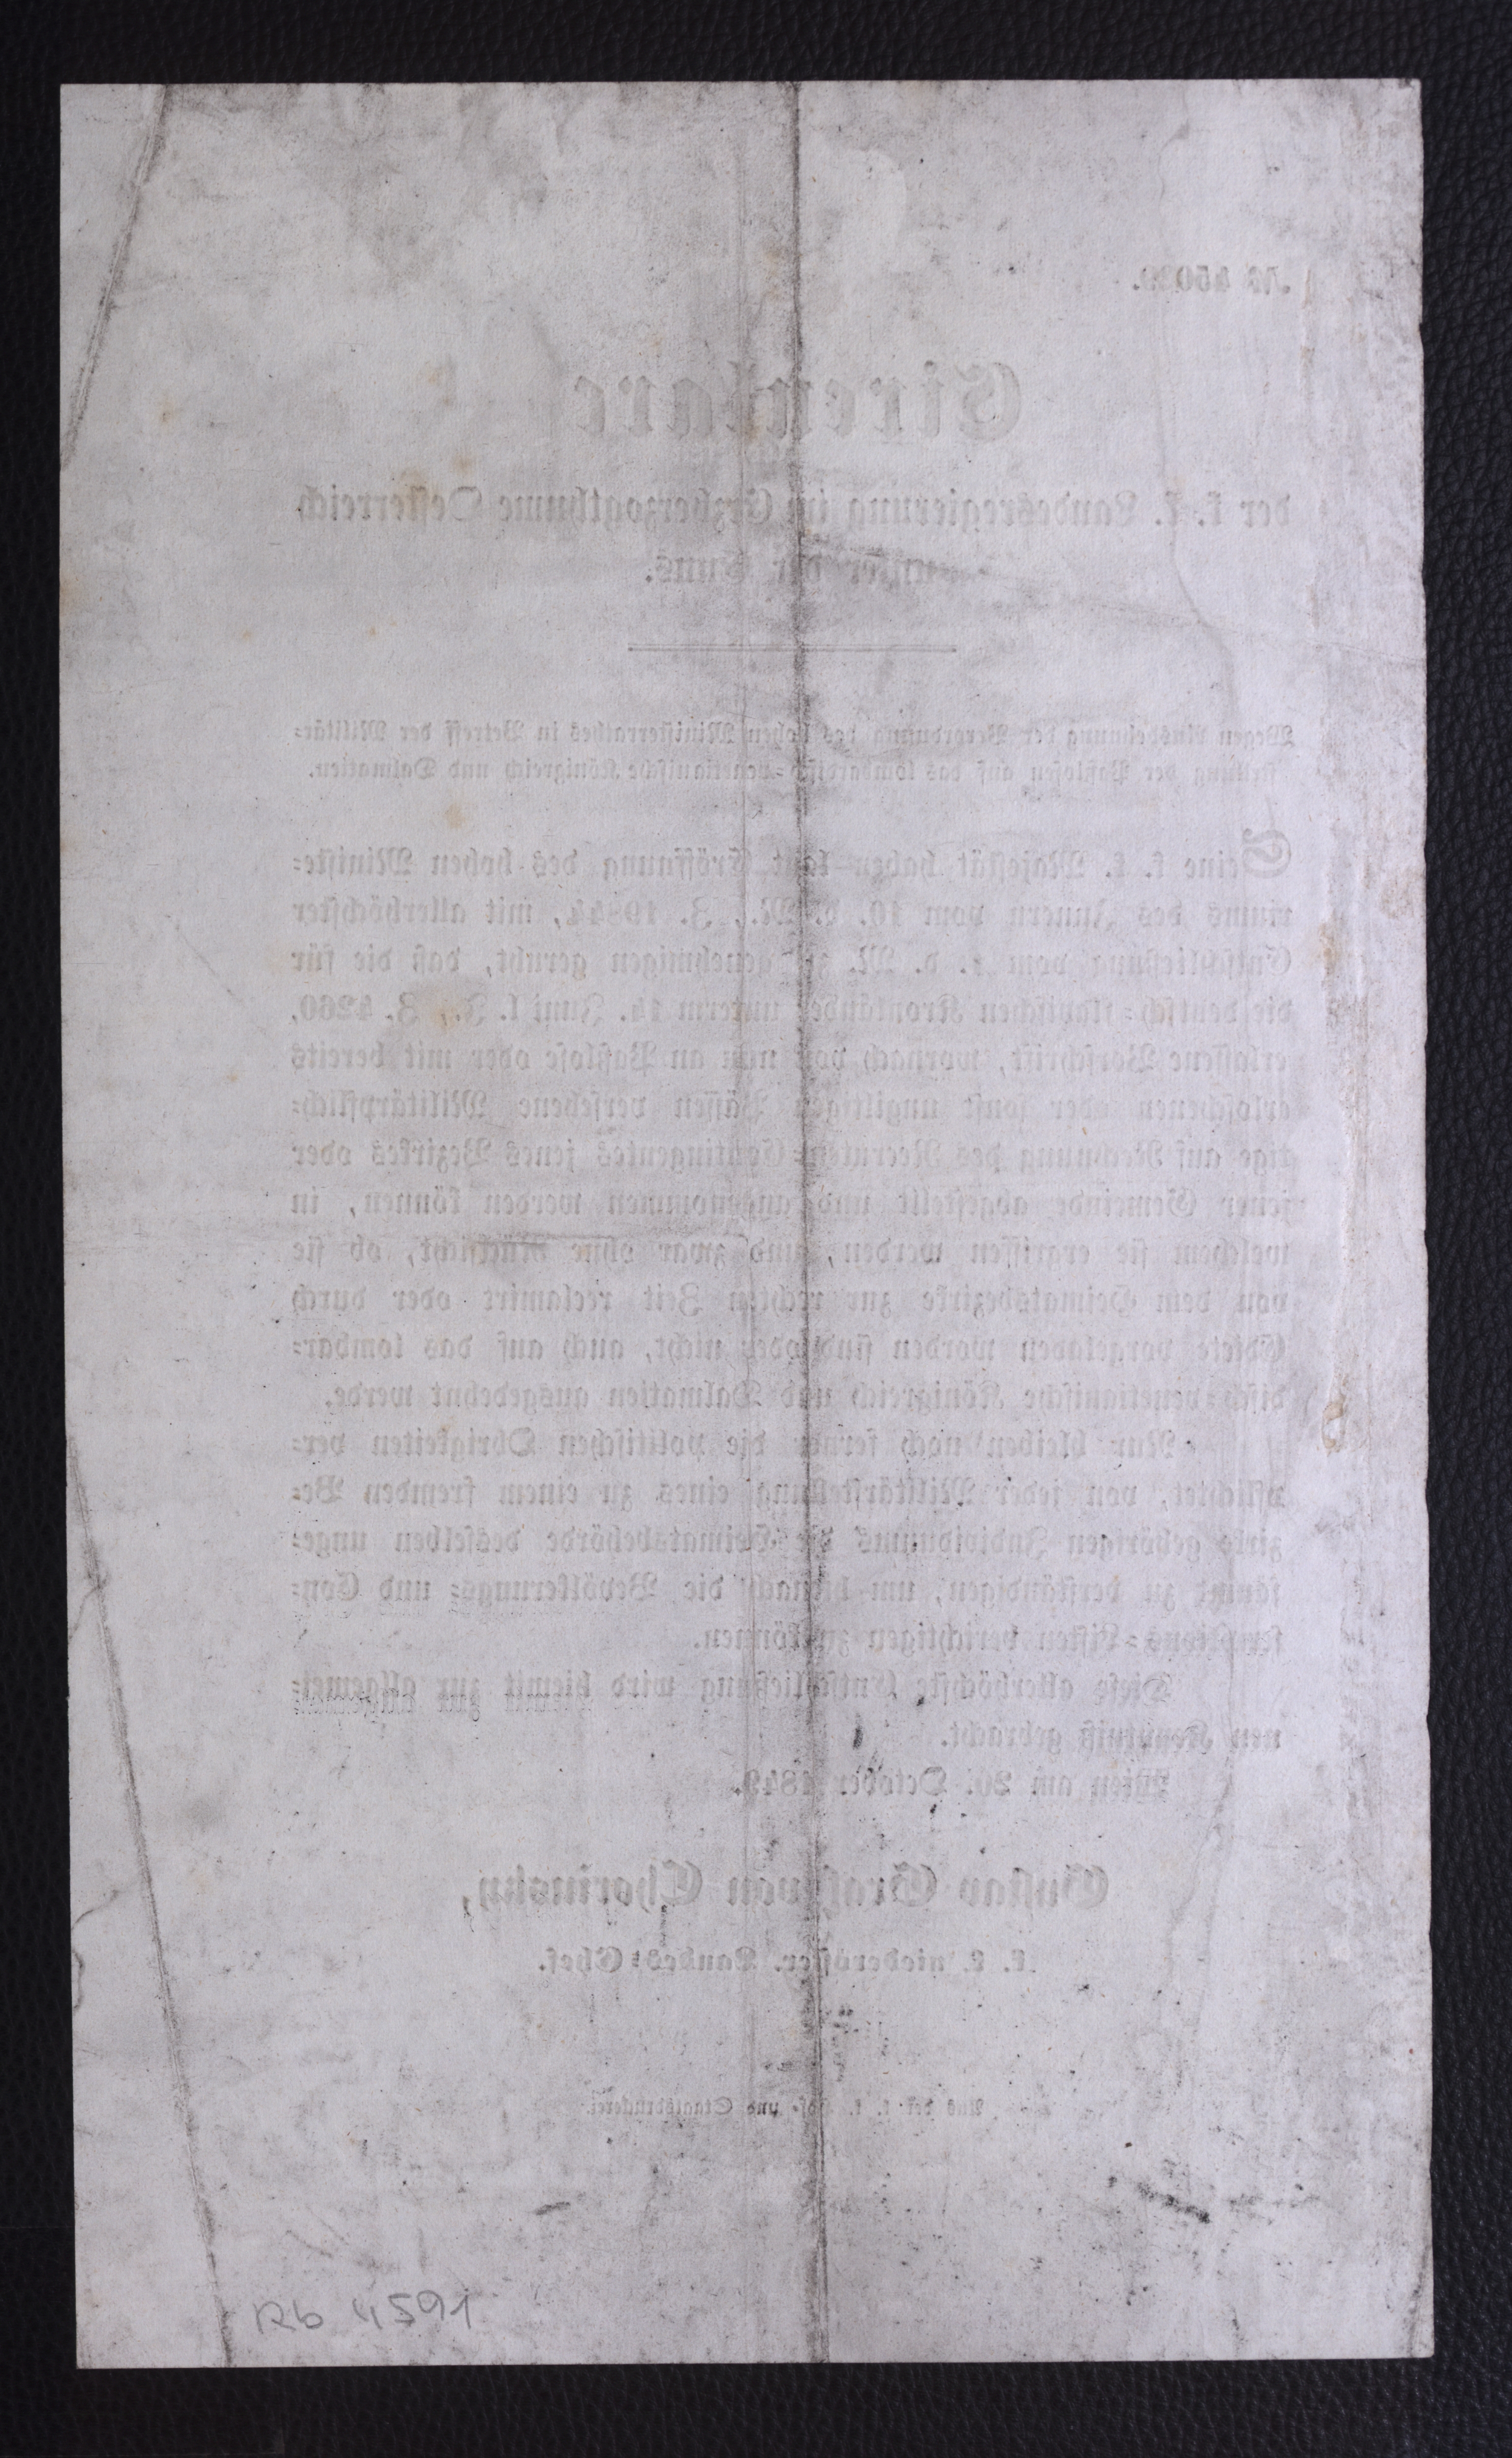 Circulare
der k. k. Landesregierung im Erzherzogthume Oesterreich
unter der Enns.
Wegen Ausdehnung der Verordnung des hohen Ministerrathes in Betreff der Militär-
stellung der Paßlosen auf das lombardisch-venetianische Königreich und Dalmatien.
Seine k. k. Majestät haben laut Eröffnung des hohen Ministe-
riums des Innern vom 16. d. M., Z. 19844, mit allerhöchster
Entschließung vom d. M. zu genehmigen geruht, daß die für
die deutsch-slavischen Kronländer unterm 14. Juni l. J., Z. 4260,
erlassene Vorschrift, wornach von nun an Paßlose oder mit bereits
erloschenen oder sonst ungiltigen Pässen versehene Militärpflich-
tige auf Rechnung des Recruten-Contingentes jenes Bezirkes oder
jener Gemeinde abgestellt und angenommen werden können, in
welchem sie ergriffen werden, und zwar ohne Rücksicht, ob sie
von dem Heimatsbezirke zur rechten Zeit reclamirt oder durch
Edicte vorgeladen worden sind oder nicht, auch auf das lombar-
disch-venetianische Königreich und Dalmatien ausgedehnt werde.
Nur bleiben noch ferner die politischen Obrigkeiten ver-
pflichtet, von jeder Militärstellung eines zu einem fremden Be-
zirke gehörigen Individuums die Heimatsbehörde desselben unge-
säumt zu verständigen, um hienach die Bevölkerungs- und Con-
scriptions-Listen berichtigen zu können.
Diese allerhöchste Entschließung wird hiemit zur allgemei-
nen Kenntniß gebracht.
Wien am 20. October 1849.
Gustav Graf von Chorinsky,
k. k. niederöster. Landes-Chef.
Aus der k. k. Hof- und Staatsdruckerei.
Rb 4591